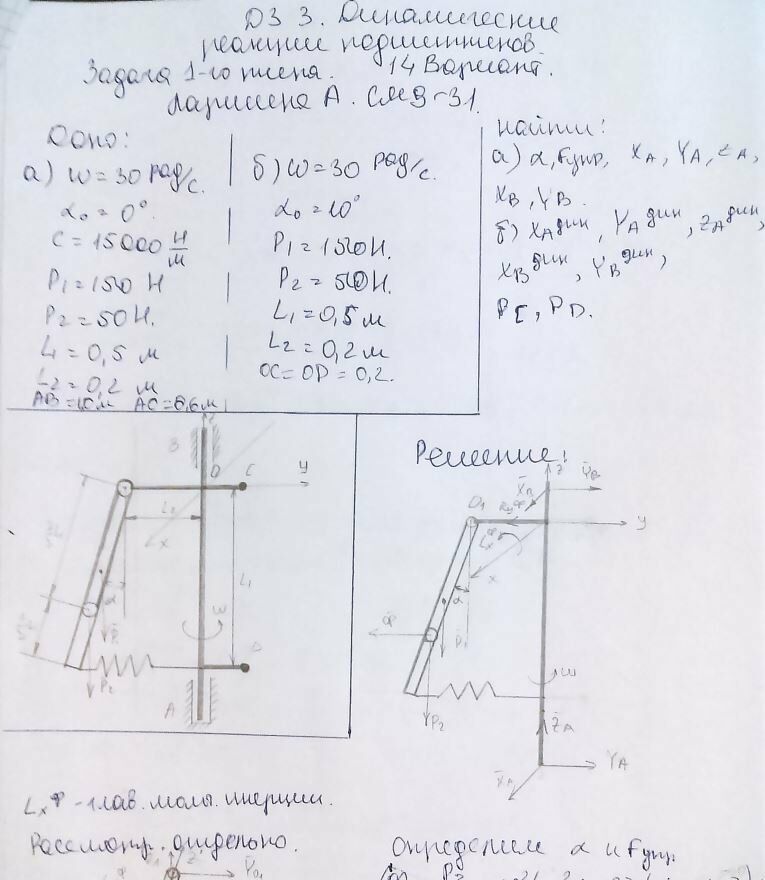 ДЗ 3. Динамические
реакции подшипников.
Задача 1-го типа. 14 Вариант.
А. СМ9-31.
Дано:
а) ω = 30 рад/с.
α₀ = 0°.
C = 15000 Н/м
P₁ = 150 Н
P₂ = 50 Н.
L₁ = 0,5 м
L₂ = 0,2 м
AB = м AC = 0,6 м
б) ω = 30 рад/с.
α₀ = 10°
P₁ = 150 Н.
P₂ = 50 Н.
L₁ = 0,5 м
L₂ = 0,2 м
OC = OD = 0,2.
Найти:
а) α, Fупр, XA, YA, ZA,
XB, YB.
б) XA дин, YA дин, ZA дин,
XB дин, YB дин,
PC, PD.
B
O
C
y
L₂
x
L₁
α
ω
P₁
D
P₂
A
Решение:
z
XB
YB
O₁
y
Lxᶲ
x
α
Φ
P₁
ω
P₂
ZA
YA
XA
Lxᶲ - глав. мом. инерции.
Рассмотр. отдельно.
Определим α и Fупр.